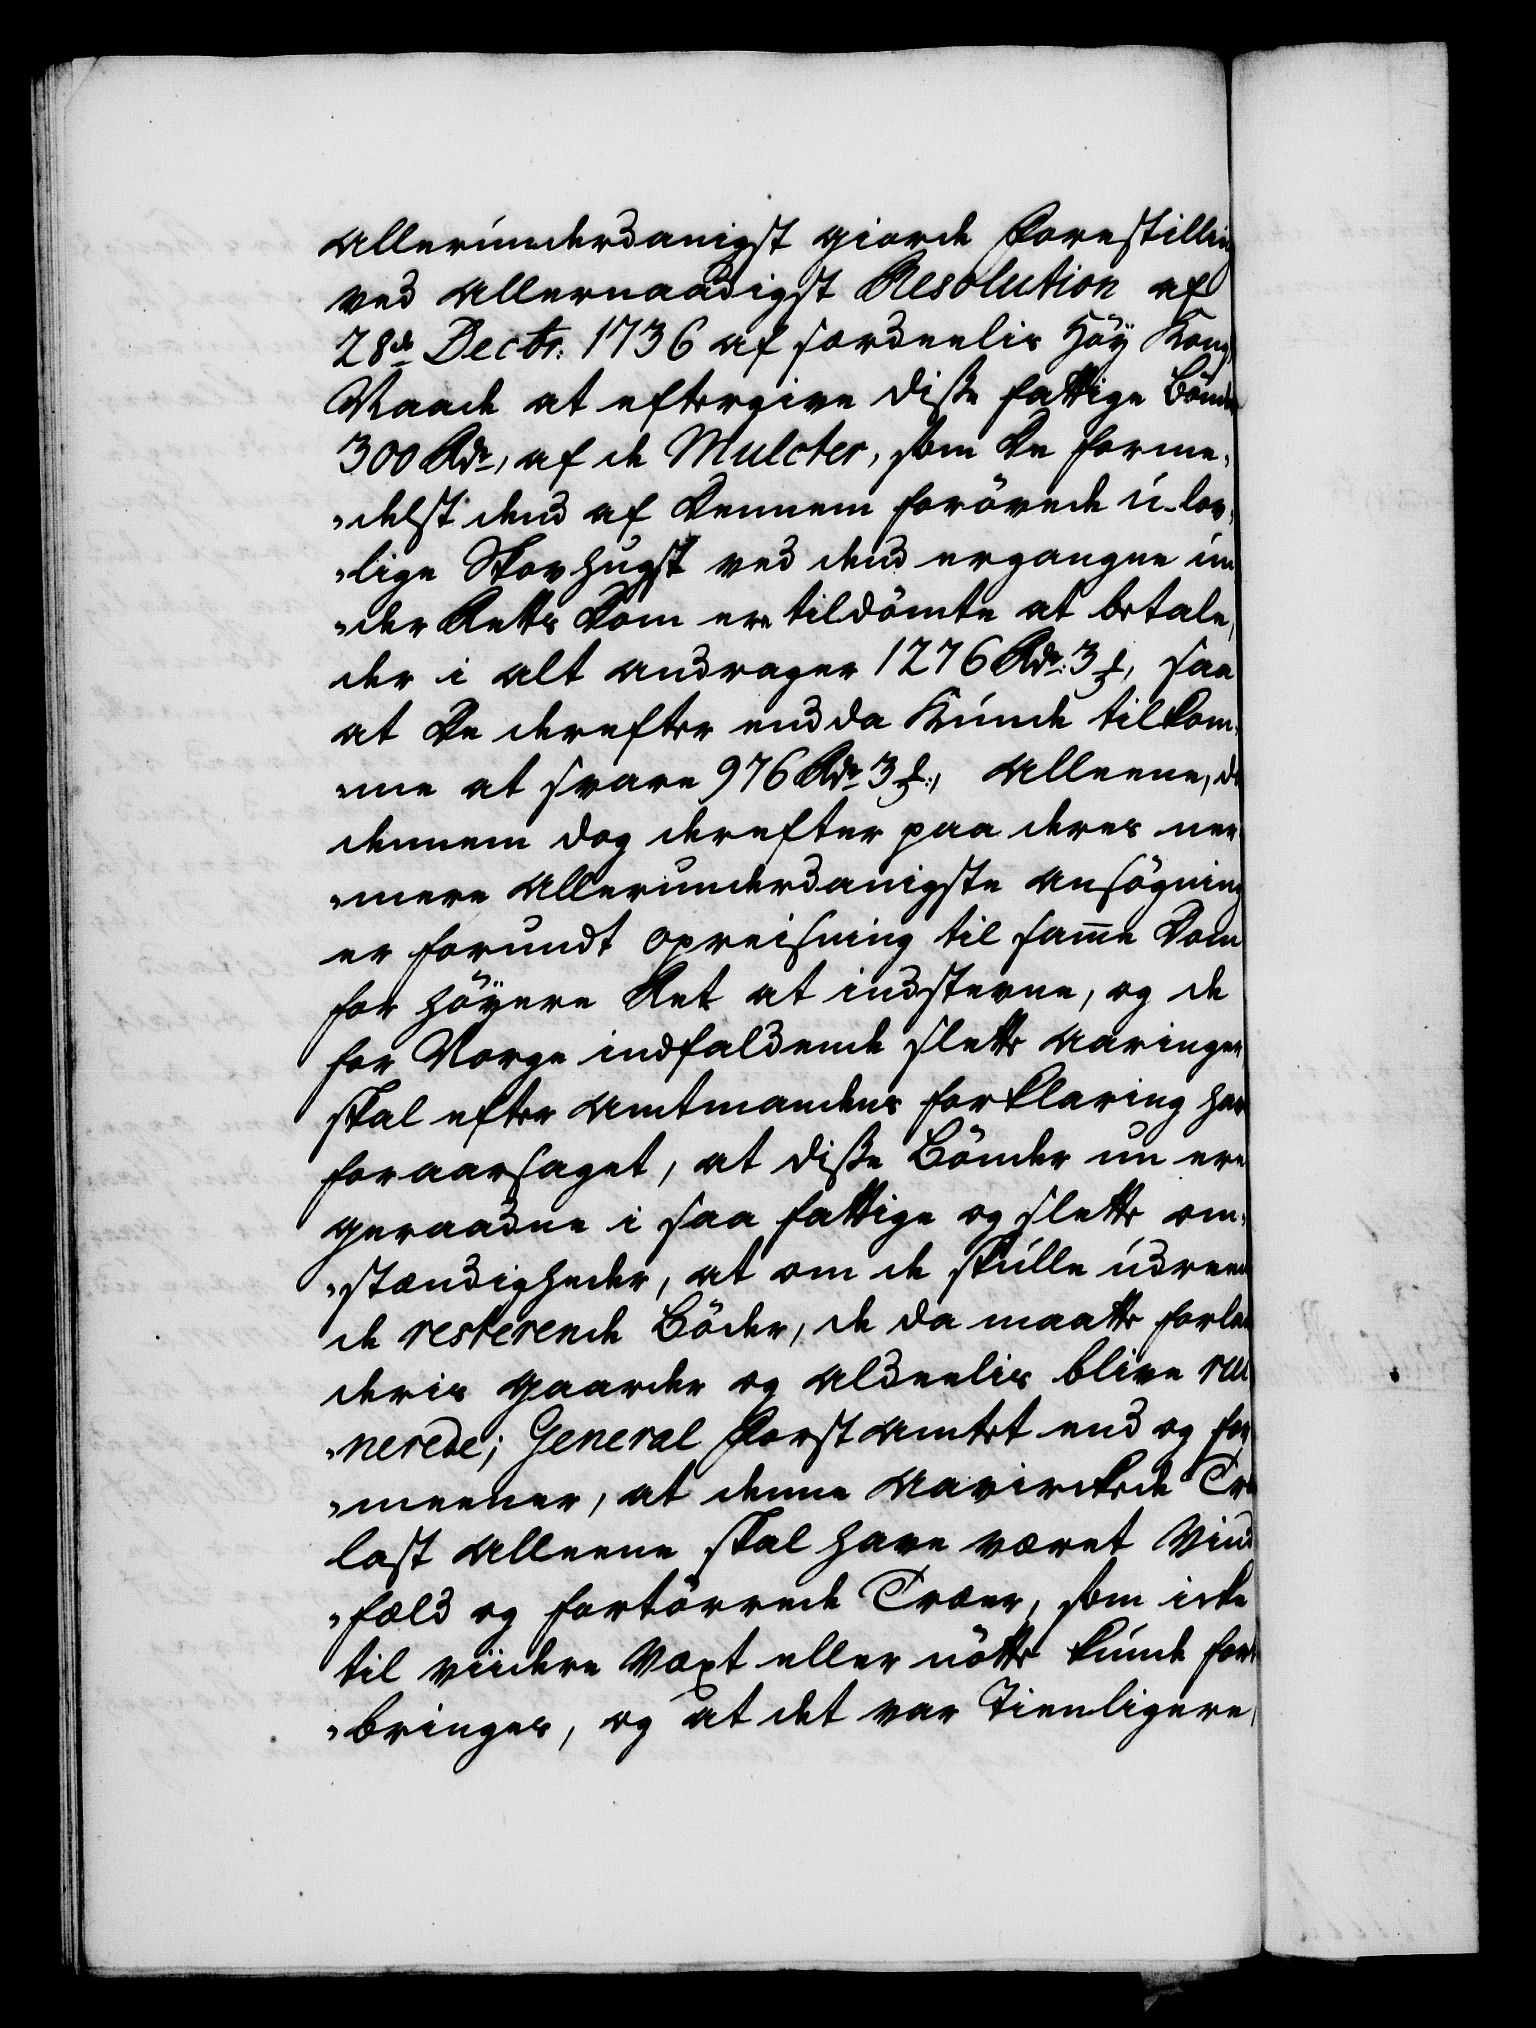 allerunderdanigst giorde Forestilling
ved allernaadigst Resolution af
28de Decbr: 1736 af sær deelis Höy Kong
Naade at eftergive disse fattige Bönder
300 Rdr, af de Mulcter, som De forme,
„delst dend af Dennem forövede u-lov,
„lige Skovhugst ved dend ergangne un
„der Retts Dom ere tildömte at betale,
der i alt andrager 1276 Rdr: 3 ß, saa
at De derefter endda kunde tilkom,
„me at svare 976 Rdr 3 ß:, alleene, da
dennem dog derefter paa deres nær
„mere allerunderdanigste ansögning
er forundt opreisning til samme Dom
for höyere Ret at indstevne, og de
for Norge indfaldende slette aaringer
skal efter amtmandens forklaring har
foraarsaget, at disse Bönder nu ere
geraadne i saa fattige og slette om,
„stændigheder, at om de skulle udreede
de resterende Böder, de da maatte forlade
deris gaarder og aldeelis blive rui
„nerede; General Forst amtet end og for
„meener, at denne aavirckede Træ
last alleene skal have været Vind
„fæld og fortörrede Træer, som icke
til viidere Væxt eller nötte kunde for
„bringes, og at det var tienligere,